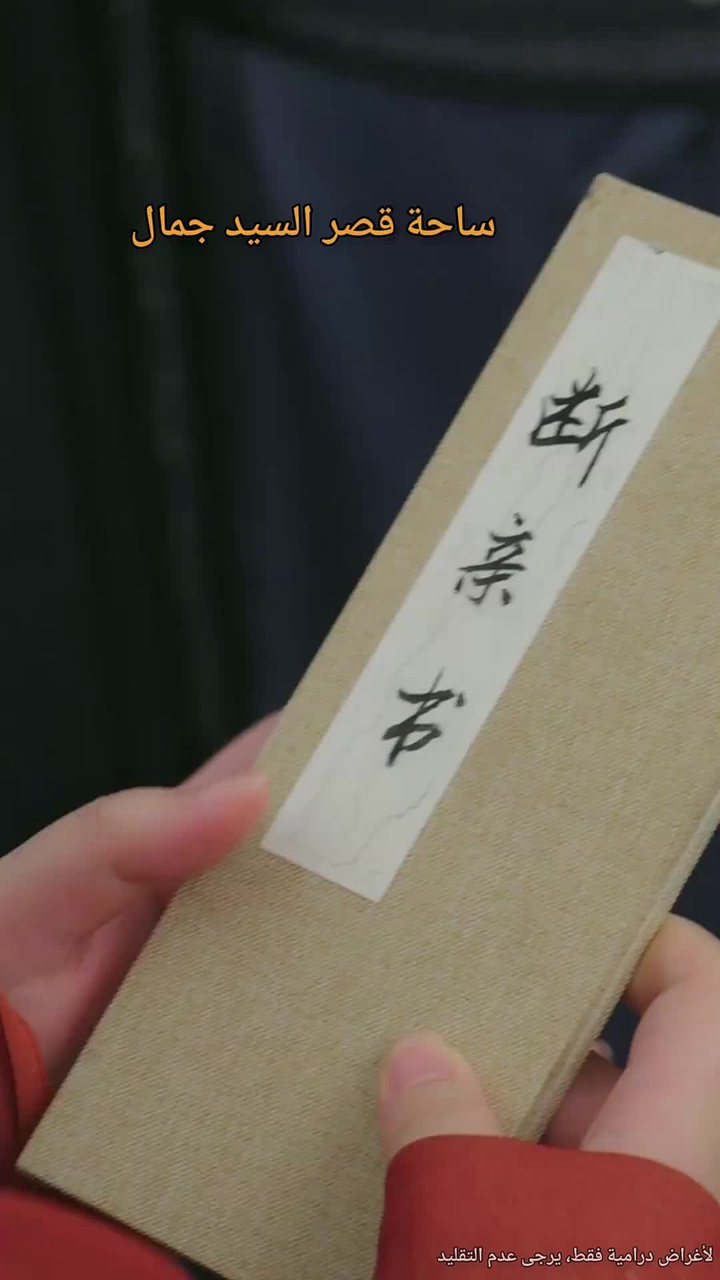 ساحة قصر السيد جمال
断亲书
لأغراض درامية فقط، يرجى عدم التقليد